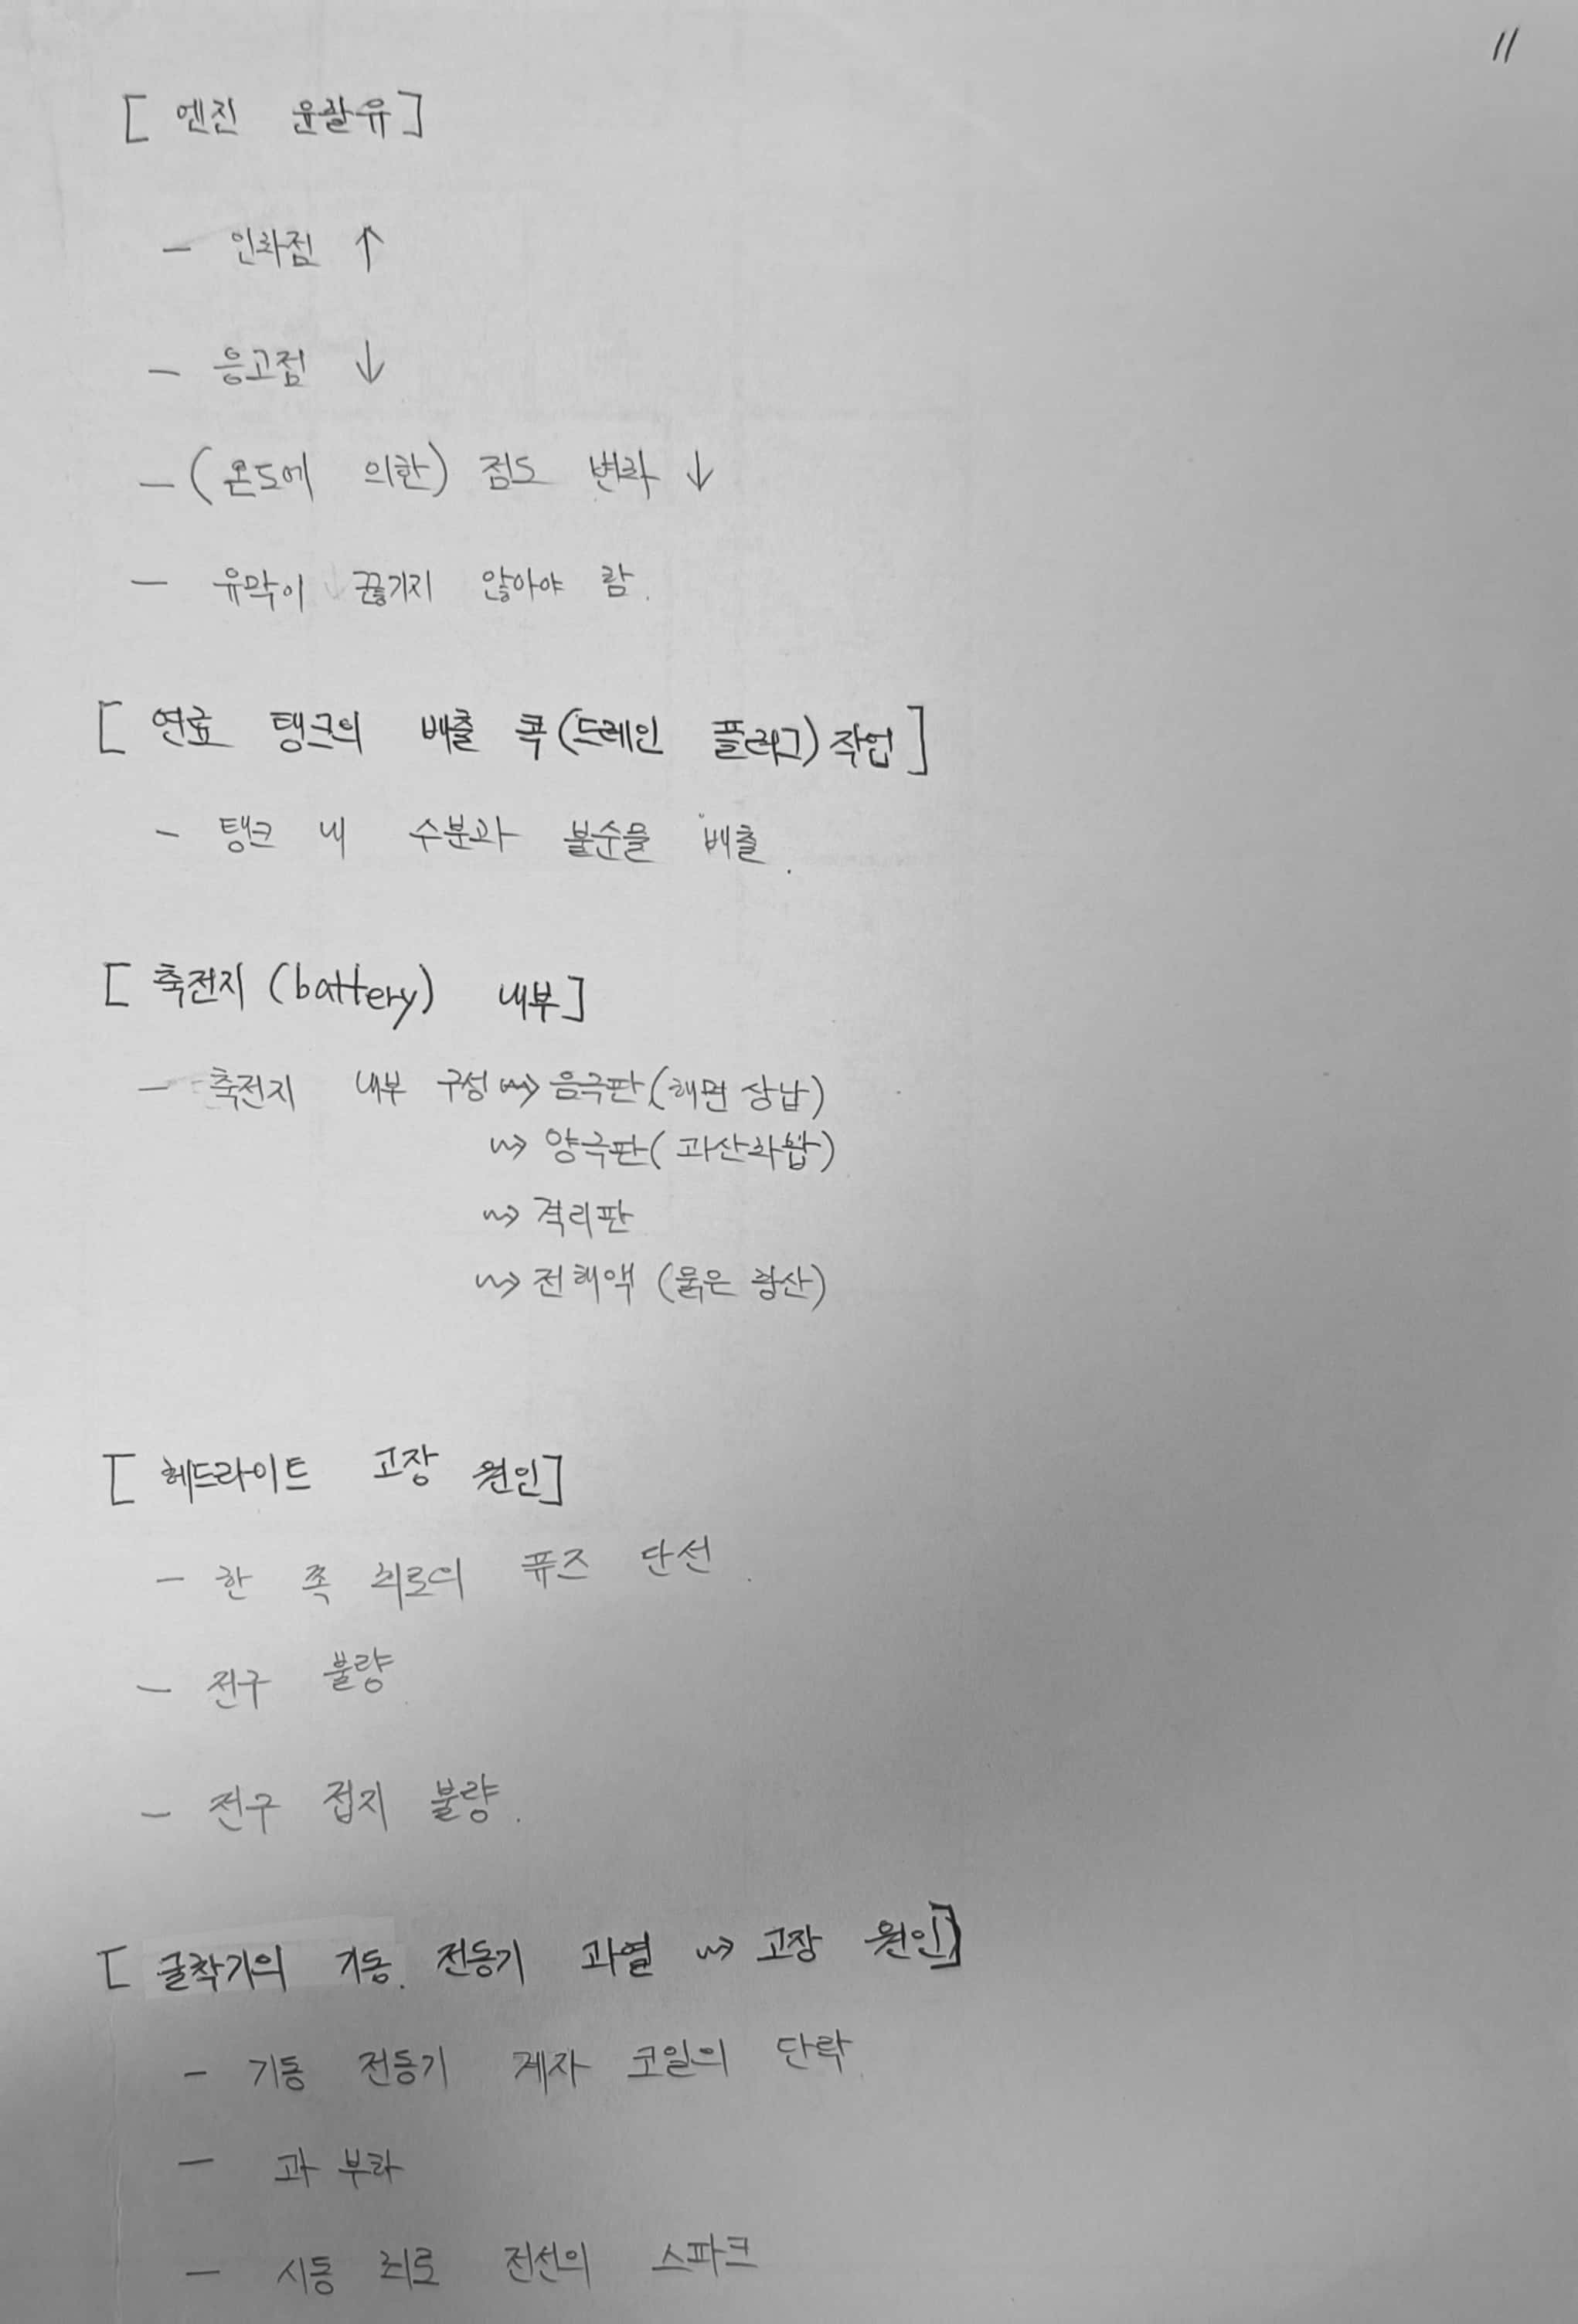 11
[ 엔진 윤활유 ]
- 인화점 ↑
- 응고점 ↓
- (온도에 의한) 점도 변화 ↓
- 유막이 끊기지 않아야 함.
[ 연료 탱크의 배출 콕(드레인 플러그) 작업 ]
- 탱크 내 수분과 불순물 배출.
[ 축전지 (battery) 내부 ]
- 축전지 내부 구성 ⇝ 음극판(해면 상납)
⇝ 양극판( 과산화납)
⇝ 격리판
⇝ 전해액 (묽은 황산)
[ 헤드라이트 고장 원인 ]
- 한 쪽 회로의 퓨즈 단선.
- 전구 불량
- 전구 접지 불량.
[ 굴착기의 기동 전동기 과열 ⇝ 고장 원인 ]
- 기동 전동기 계자 코일의 단락
- 과 부하
- 시동 회로 전선의 스파크